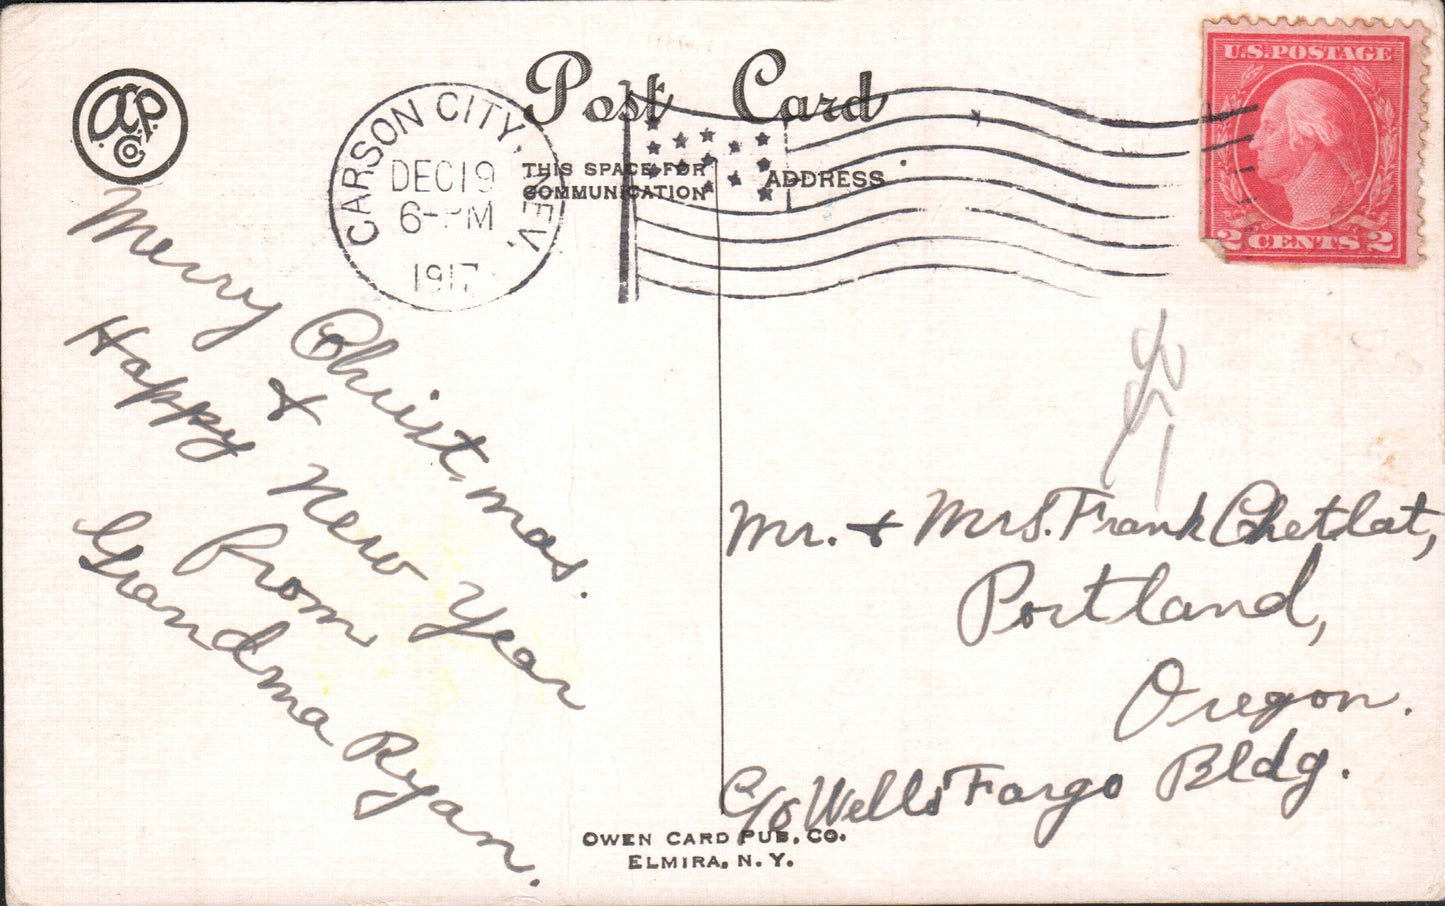 Post Card
THIS SPACE FOR
COMMUNICATION
ADDRESS
CARSON CITY, NEV.
DEC 19
6-PM
1917
U.S. POSTAGE
2 CENTS 2
Merry Christmas.
&
Happy New Year
from
Grandma Ryan.
Mr. & Mrs. Frank Chetlat,
Portland,
Oregon.
c/o Wells Fargo Bldg.
OWEN CARD PUB. CO.
ELMIRA, N. Y.